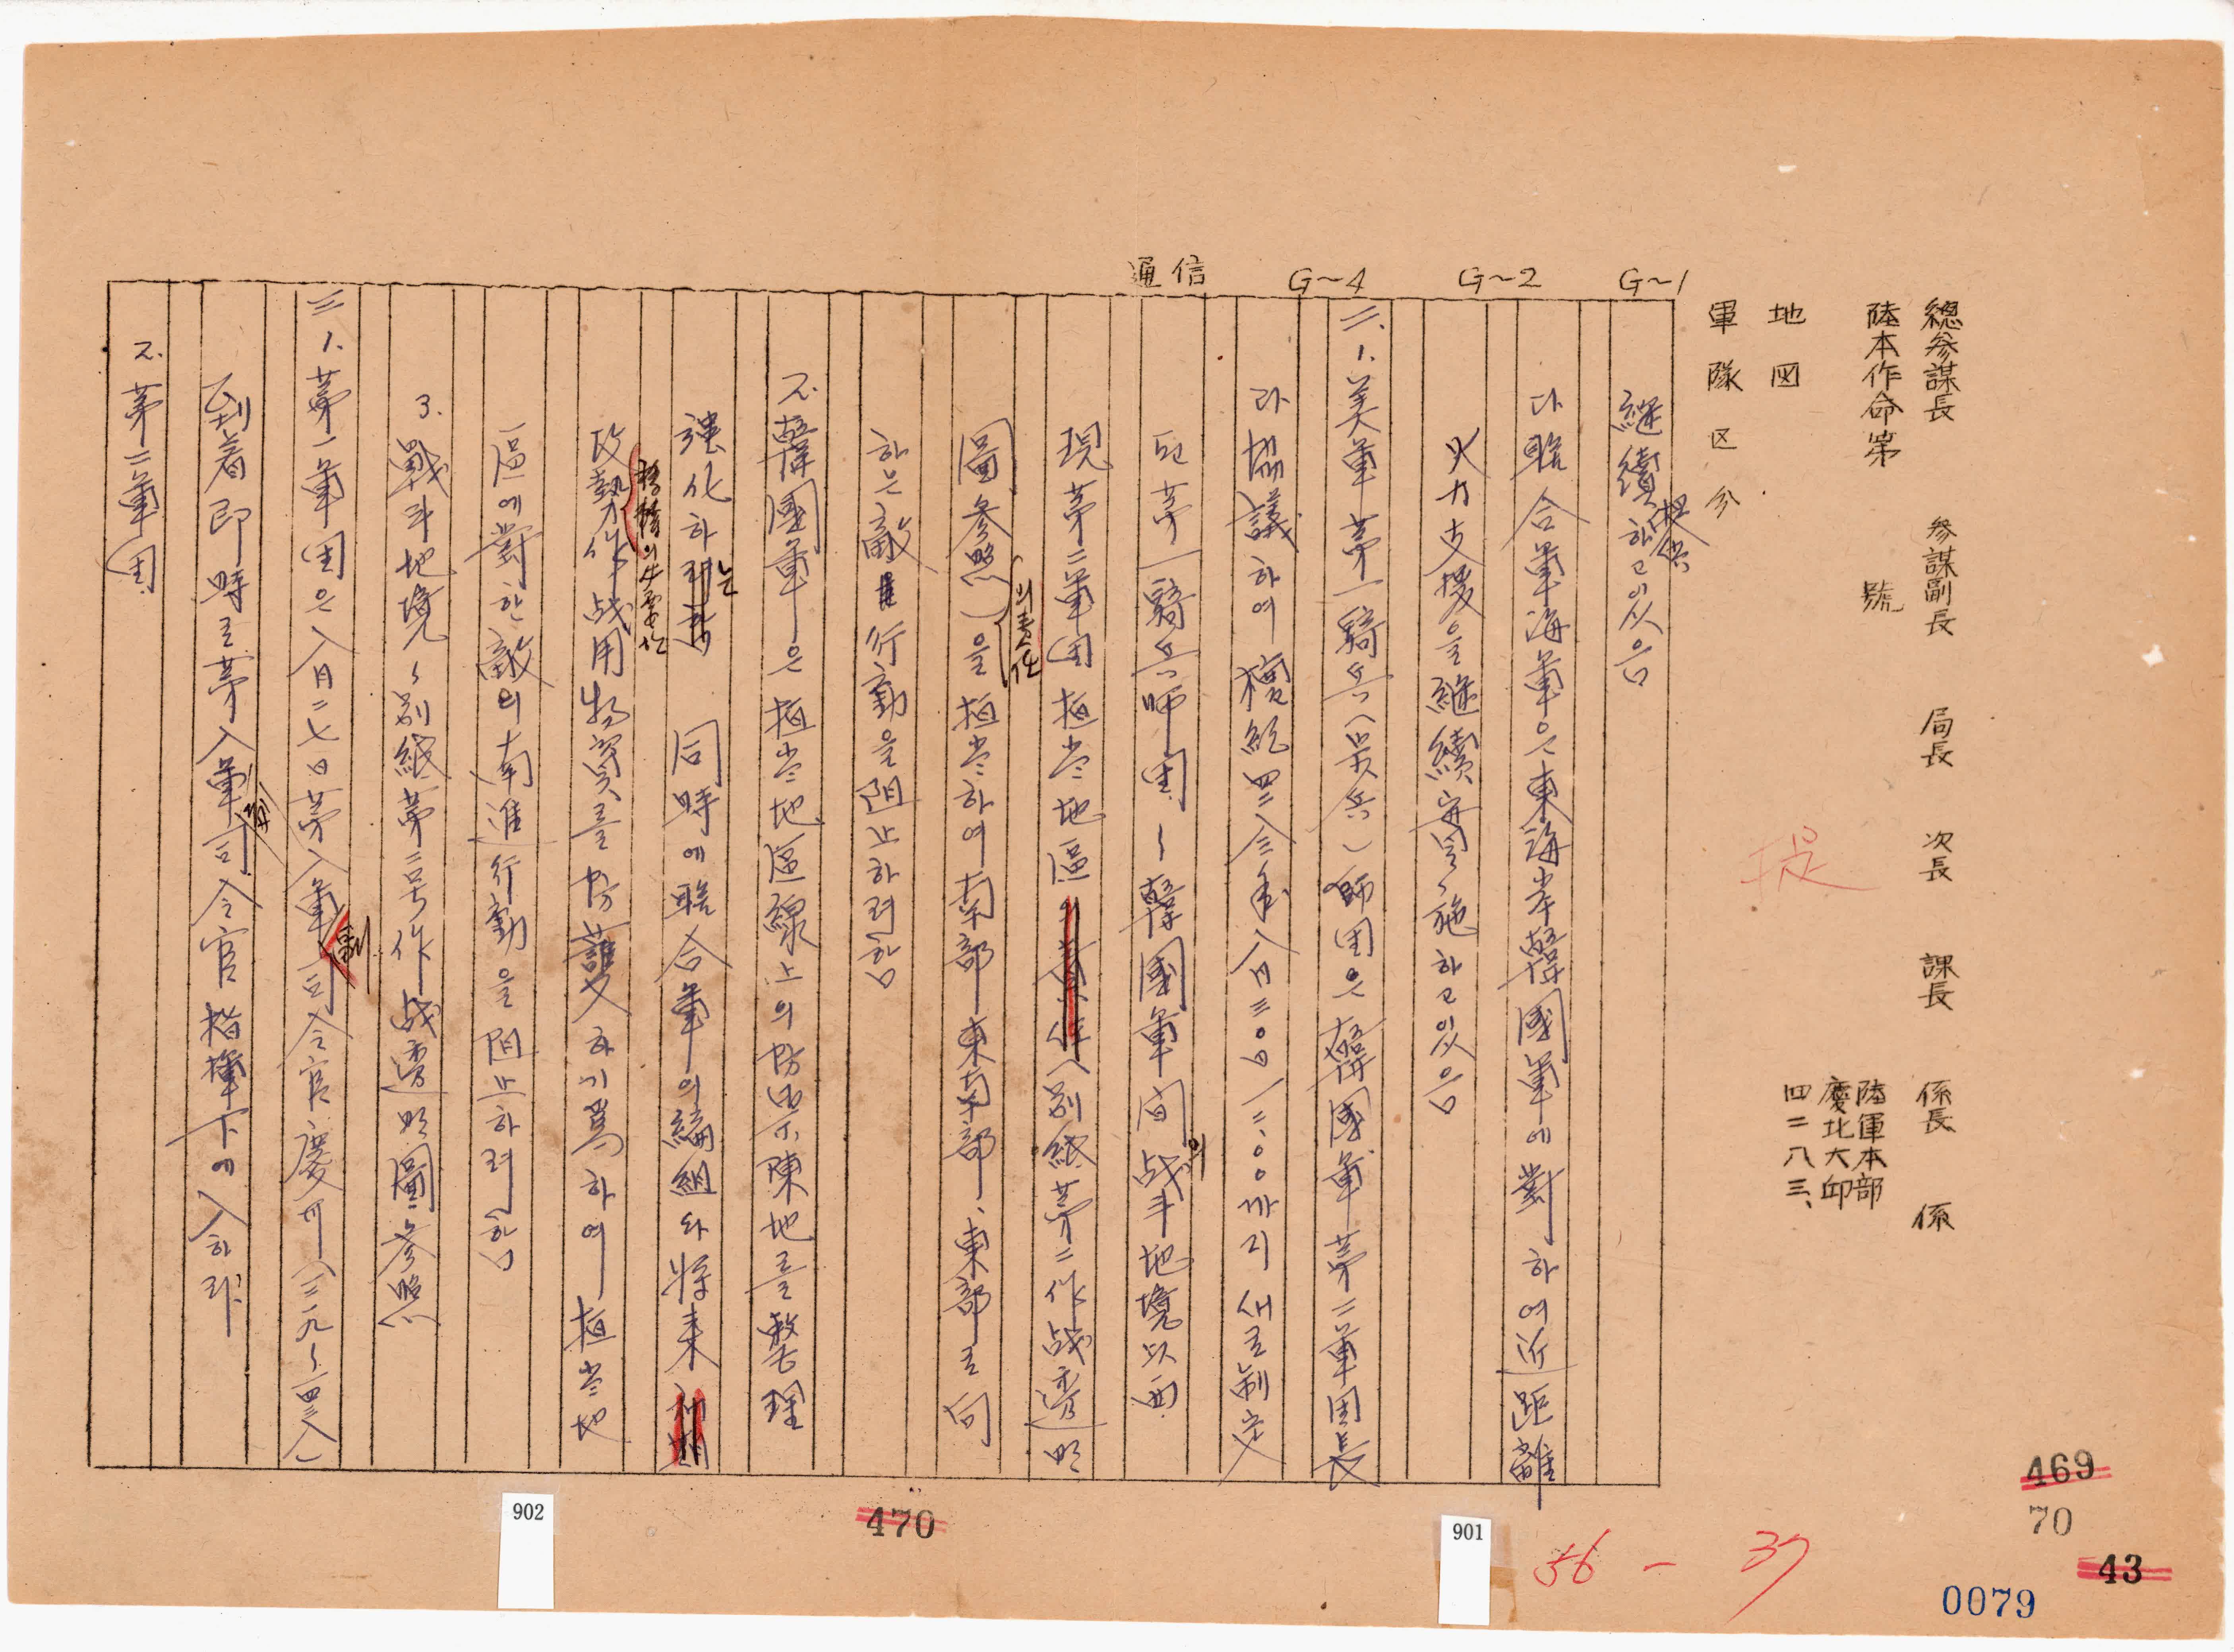 總參謀長 參謀副長 局長 次長 課長 係長 係
陸本作命第 號
陸軍本部
慶北大邱
四二八三、
地図
軍隊区分
G~1
G~2
G~4
通信
繼續하고있슴
提供
다 聯合軍海軍은東海岸韓國軍에對하여近距離
火力支援을繼續實施하고있슴
二、1. 美軍第一騎兵(步兵)師団은韓國軍第二軍団長
과協議하여檀紀四二八三年八月三0日一二、00까지새로制定
된第一騎兵師団~韓國軍间의战斗地境以西
現第二軍団担当地區(別紙第二作战透明
圖參照)의責任을担当하여南部東南部、東部로向
하는敵行動을阻止하려함
2. 韓國軍은担当地區線上의防禦陳地를整理
强化하는 同時에聯合軍의編組와將來
攻勢作战用物資를防護하기爲하여担当地
區에對한敵의南進行動을阻止하려함
3. 戰斗地境~別紙第二号作战透明圖參照
三 1. 第一軍団은八月二七日第八軍副司令官慶州(三一九~四三八)
到着即時로第八軍副司令官指揮下에入하라
2. 第二軍団
提
469
70
43
0079
56 - 37
901
470
902